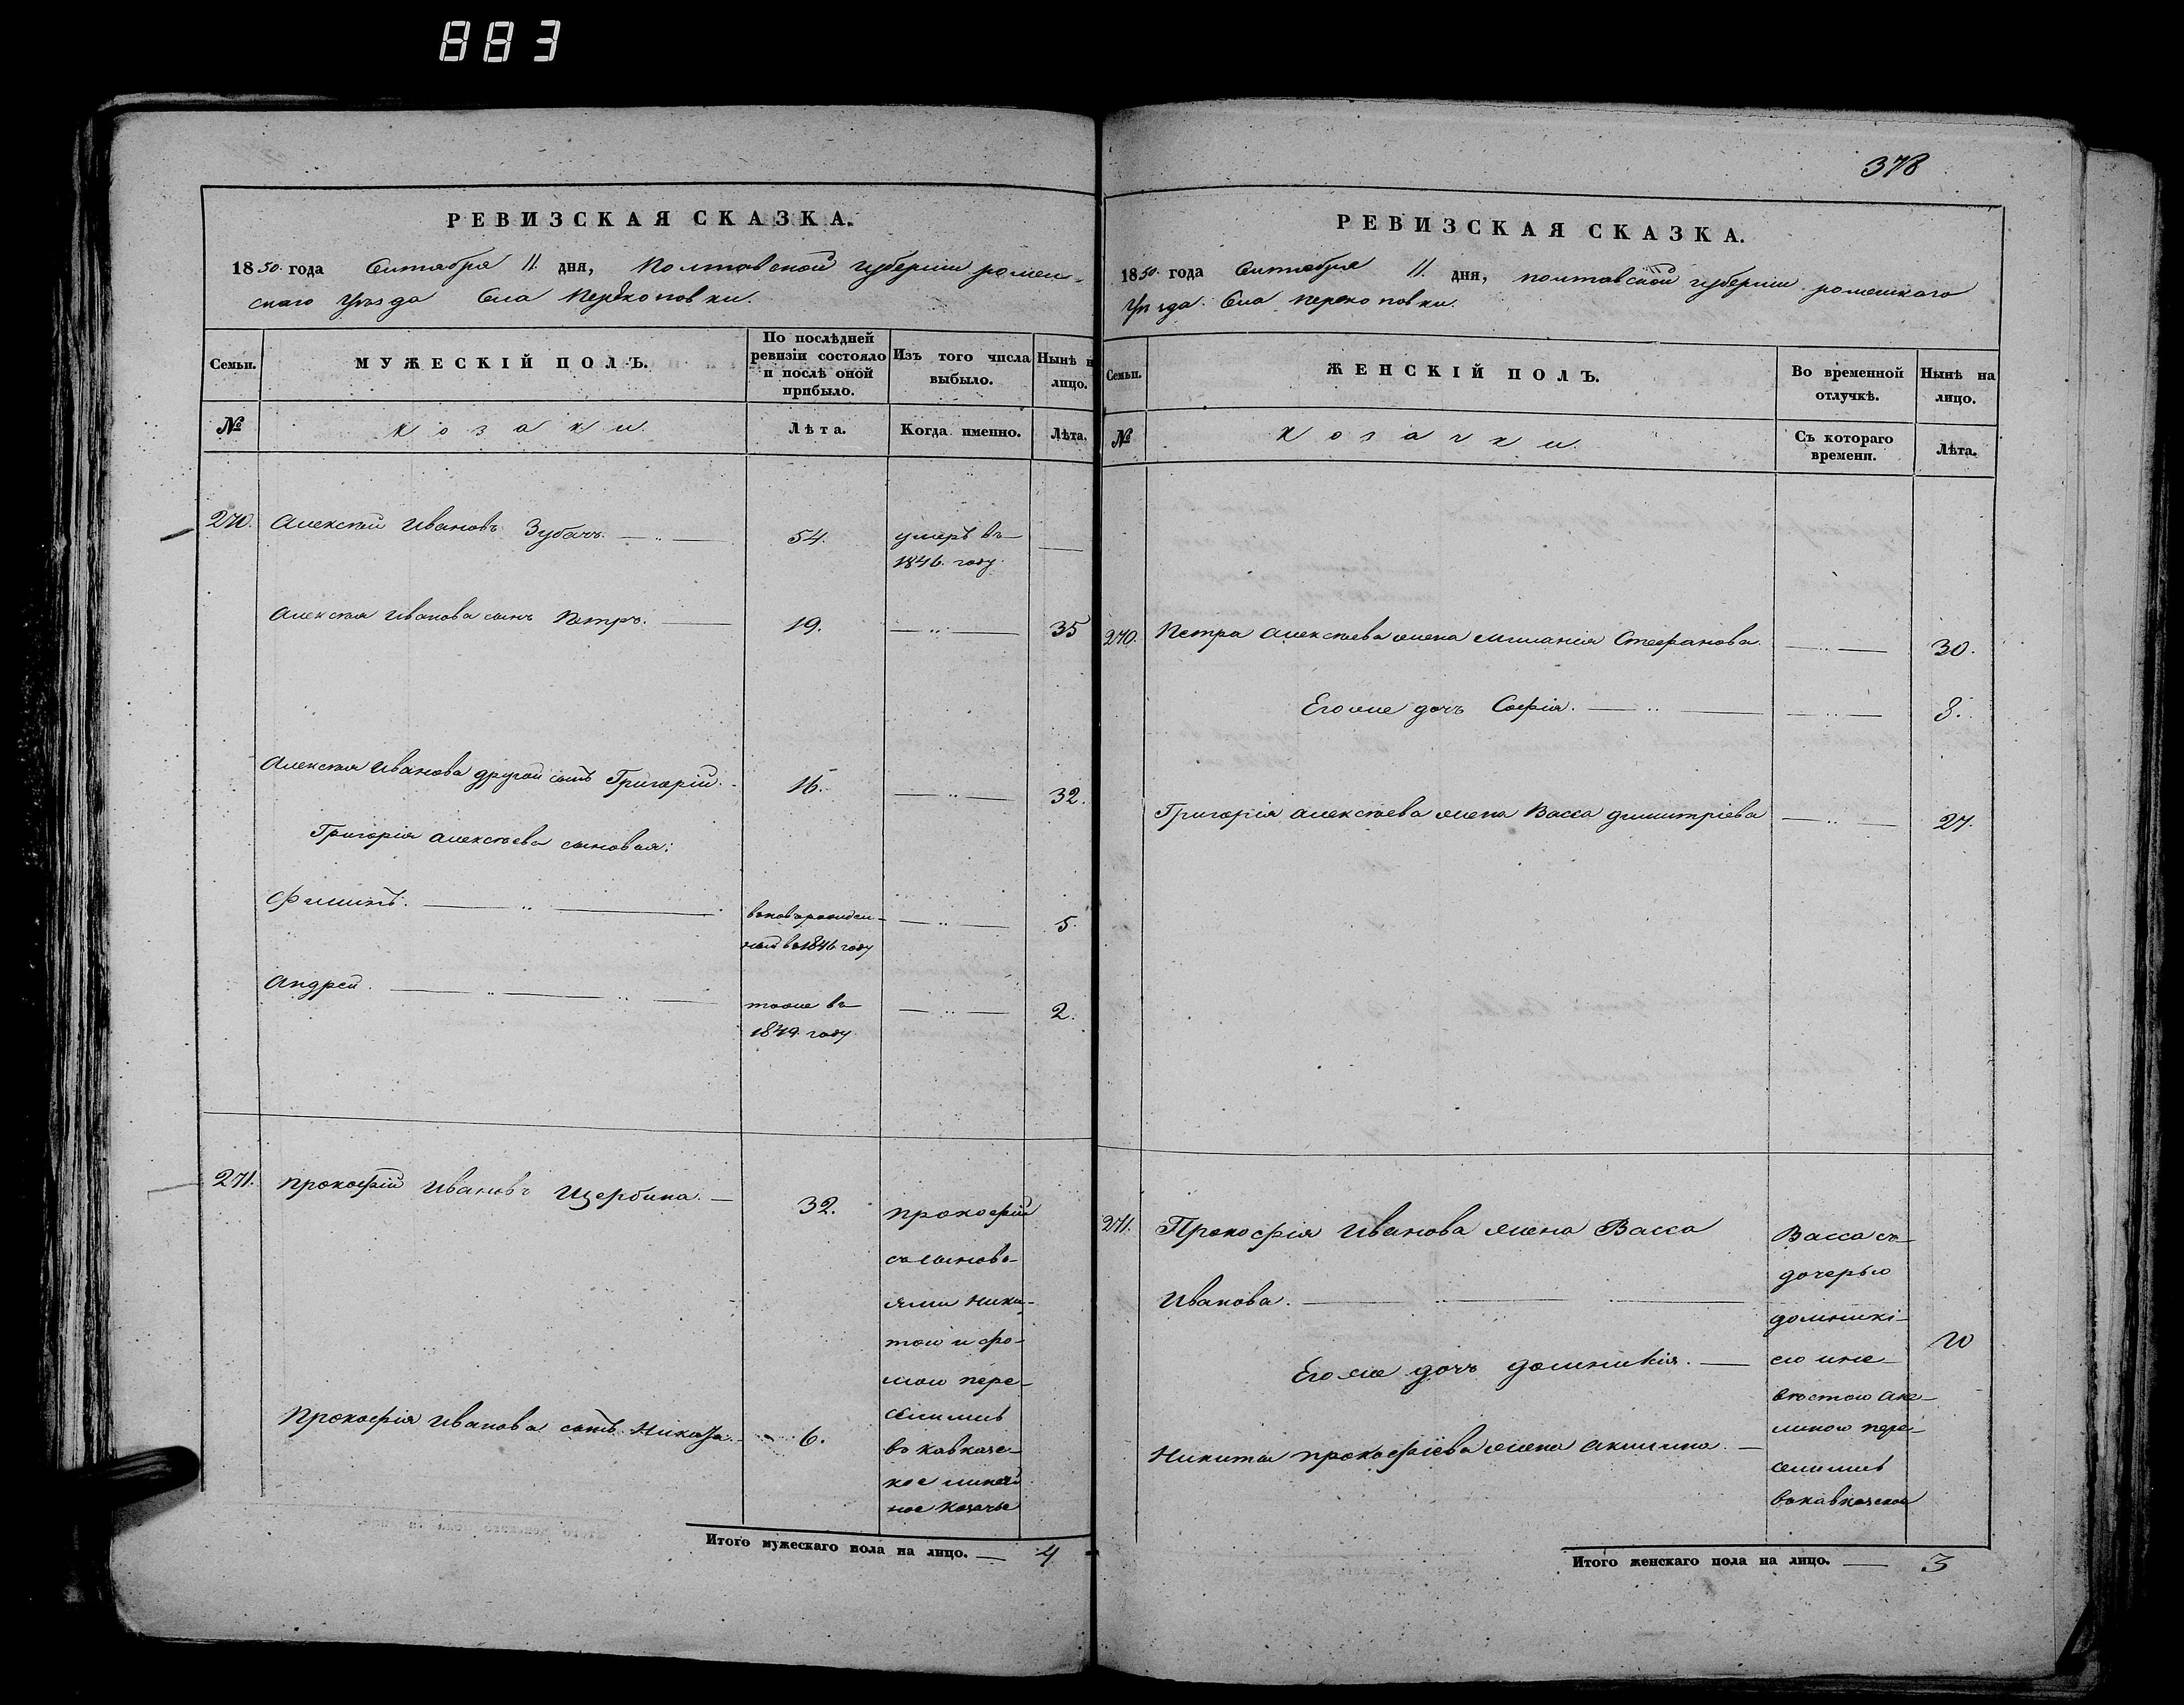 883
РЕВИЗСКАЯ СКАЗКА.
1850 года Сентября 11 дня, Полтавской губерніи ромен-
скаго уѣзда Села Перекоповки.
Семьи.
МУЖЕСКІЙ ПОЛЪ.
По послѣдней ревизіи состояло и послѣ оной прибыло.
Изъ того числа выбыло.
Нынѣ на лицо.
№
Козаки.
Лѣта.
Когда именно.
Лѣта.
270. Алексѣй Ивановъ Зубачъ. 54. умеръ въ
1846. году.
Алексѣя Иванова сынъ Петръ. 19. 35
Алексѣя Иванова другой сынъ Григорій. 16. 32.
Григорія Алексѣева сыновья:
Филипъ. вновьрожден- 5.
ный въ 1846 году
Андрей. тоже въ 2.
1849. году
271. Прокофій Ивановъ Щербина. 32. Прокофій
съ сыновь-
ями Ники-
тою и Фо-
мою пере-
селились
Прокофія Иванова сынъ Никита. 6. въ кавказс-
кое линей-
ное козачье
Итого мужескаго пола на лицо. 4
378
РЕВИЗСКАЯ СКАЗКА.
1850 года Сентября 11. дня, полтавской губерніи роменскаго
уѣзда Села Перекоповки.
Семьи.
ЖЕНСКІЙ ПОЛЪ.
Во временной отлучкѣ.
Нынѣ на лицо.
№
Козачки.
Съ котораго времени.
Лѣта.
270. Петра Алексѣева жена Миланія Стефанова. 30.
Его же дочь Софія. 8.
Григорія Алексѣева жена Васса Димитріева 27.
271. Прокофія Иванова жена Васса Васса съ
дочерью
Иванова. домникі-
Его же дочь Домникія. ею и не-
вѣстою Аку-
линою пере-
Никиты Прокофіева жена Акилина. селились
въ кавказское
Итого женскаго пола на лицо. 3